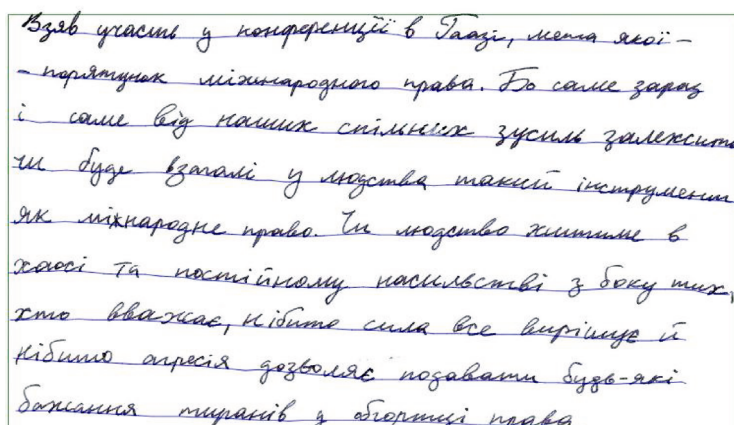 Взяв участь у конференції в Гаазі, мета якої –
– порятунок міжнародного права. Бо саме зараз
і саме від наших спільних зусиль залежить
чи буде взагалі у людства такий інструмент
як міжнародне право. Чи людство житиме в
хаосі та постійному насильстві з боку тих,
хто вважає, нібито сила все вирішує й
нібито агресія дозволяє подавати будь-які
бажання тиранів у обгортці права